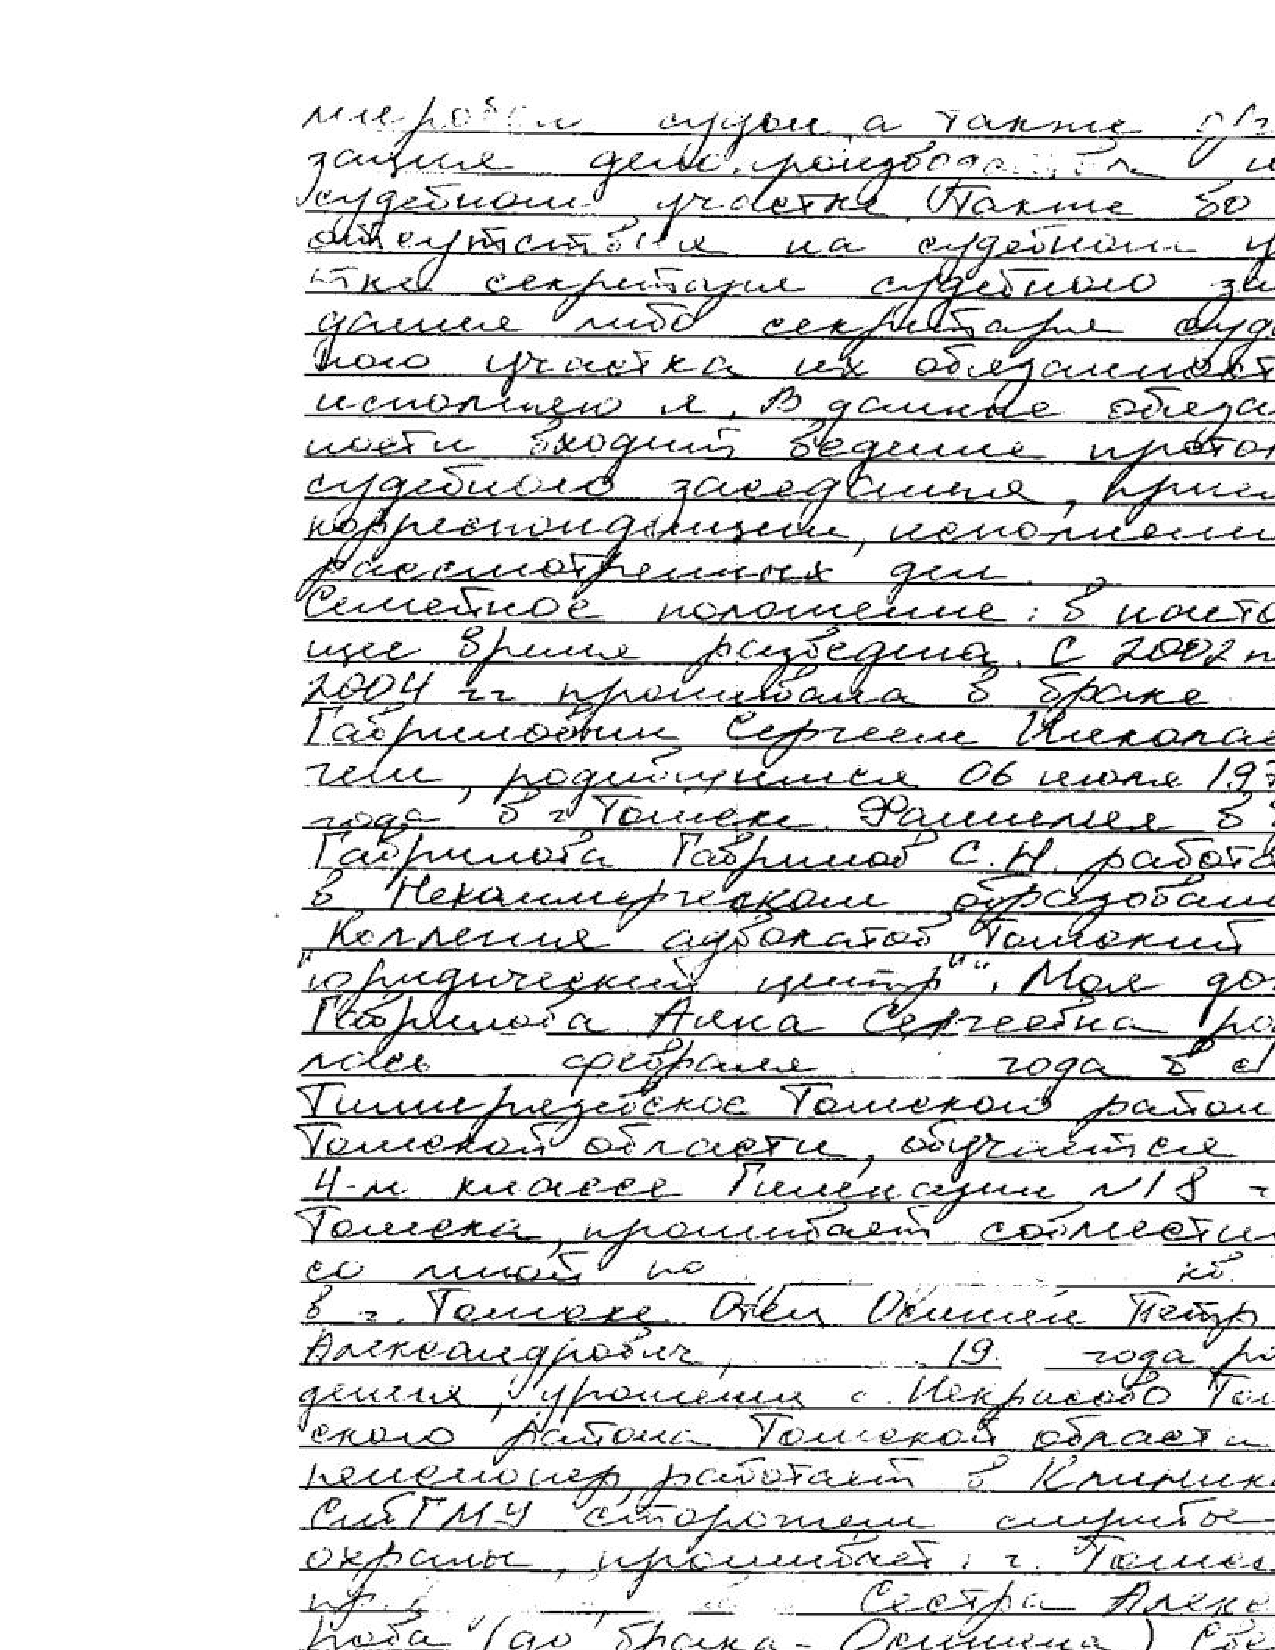 мировом судом, а также орга
зацию делопроизводства и
судебном участке. Также во
отсутствие на судебном у
стке секретаря судебного за
дания либо секретаря суде
ного участка их обязанност
исполняю я. В данные обяза
ности входит ведение проток
судебного заседания, прием
корреспонденции, исполнени
рассмотренных дел.
Семейное положение: в насто
щее время разведена. С 2002 п
2004 гг проживала в браке
Гавриловым Сергеем Николае
чем, родившимся 06 июля 197
года в г. Томске. Фамилия в
Гаврилова Гаврилов С.Н. работа
в Некоммерческом образовани
"Коллегия адвокатов "Томский
"юридический центр"". Моя до
Гаврилова Анна Сергеевна ро
лась февраля года в с
Тимирязевское Томского район
Томской области, обучается
4-м классе Гимназии №18 г
Томска, проживает совместн
со мной по кв.
в г. Томске. Отец Осинин Петр
Александрович, 19 года ро
дения, уроженец с. Некрасово Том
ского района Томской области
пенсионер, работает в Клиник
СибГМУ сторожем службы
охраны, проживает: г. Томск
пр. Сестра Алекс
рова (до брака - Осинина) Све